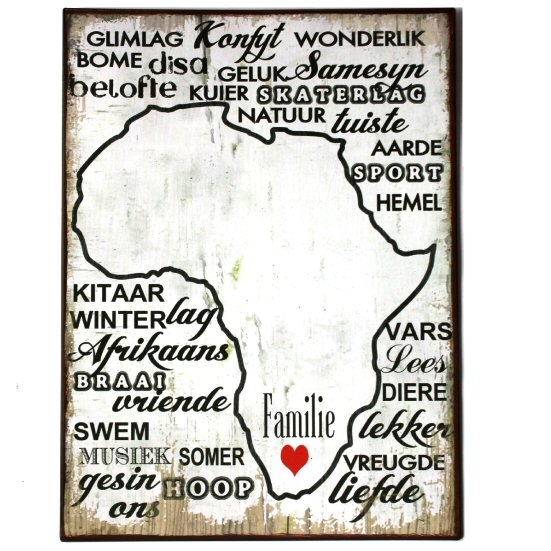 GLIMLAG Konfyt WONDERLIK
BOME disa GELUK Samesyn
belofte KUIER SKATERLAG
NATUUR tuiste
AARDE
SPORT
HEMEL
KITAAR
WINTER lag
Afrikaans
BRAAI
vriende
SWEM
MUSIEK SOMER
gesin HOOP
ons
VARS
Lees
DIERE
lekker
VREUGDE
liefde
Familie